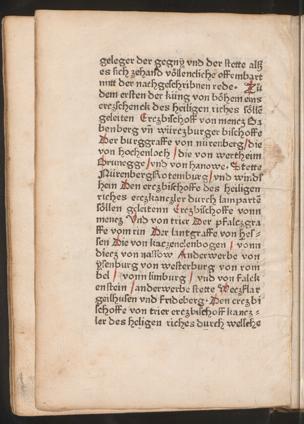 geleger der gegny vnd der stette alß
es sich zehand võllenclichē offembart
mit der nachgeschribnen rede· Zů
dem ersten der küng von bõhem eins
erczschenck des heiligen riches sõllē
geleiten Erczbischoff von mencz Ba
benberg vñ würczburger bischoffe
Der burggraffe von nürenberg/die
von hochenloch/die von wertheim
Brunegge/vnd von hanowe· Stette
Nürenberg Rotemburg/vnd windß
hein Den erczbischoffe des heiligen
riches erczkanczler durch lamparte
sõllen geleitenn Erczbischoffe vonn
mencz Vnd von trier Der pfalczgra
ffe vom rin Der lantgraffe von hes
sen Die von kaczenelenbogen/vonn
diecz von nassow Anderwerbe von
ysenburg von westerburg von ron
bel/vonn limburg/vnd von falck
enstein/anderwerbe stette Weczflar
geilhusen vnd Frideberg· Den erczbi
schoffe von trier erczbischoff kancz
ler des heligen riches durch welsche